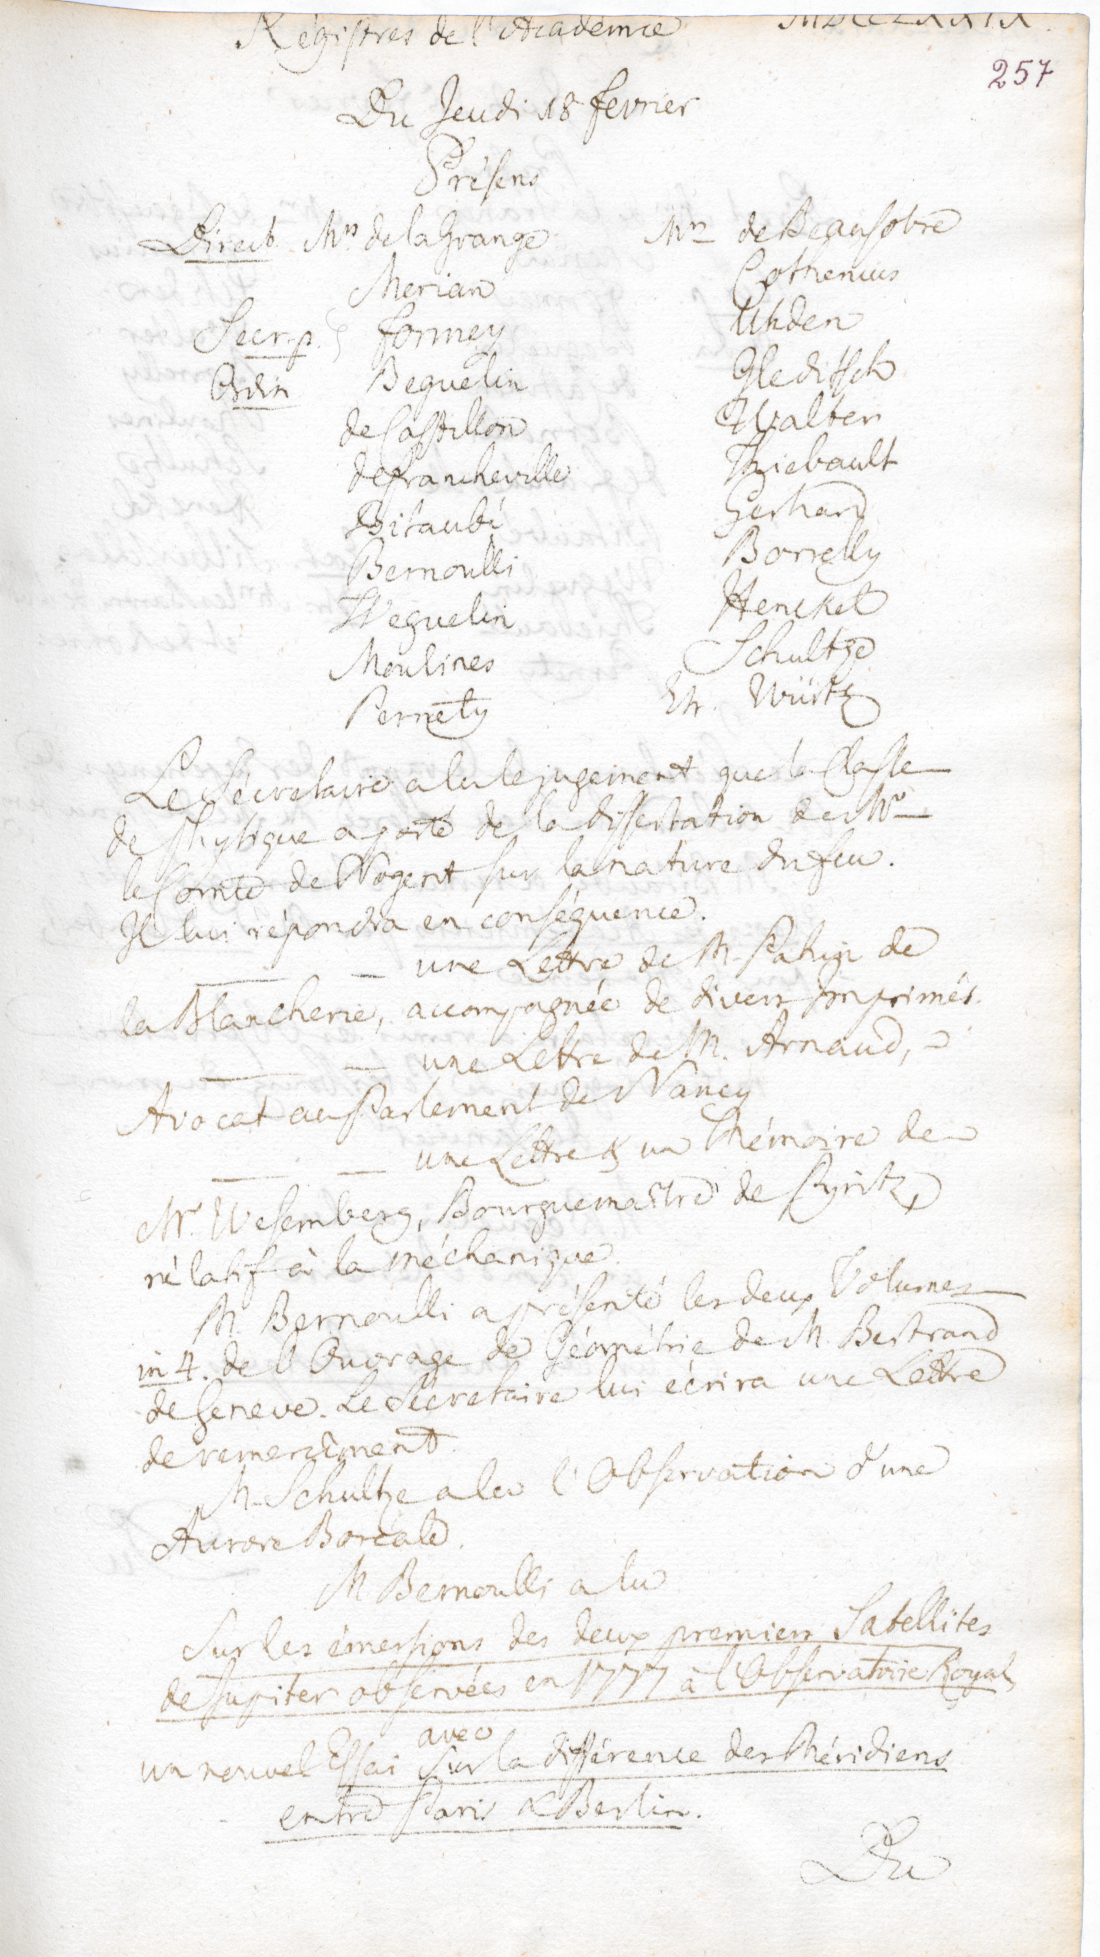 Régistres de l'Academie MDCCLXXIX.
257
Du Jeudi 18 fevrier
Présens
Direct. Mrs de la Grange
Merian
Secr. p. formey
Ordin Beguelin
de Castillon
de francheville
Bitaubé
Bernoulli
Weguelin
Moulines
Pernety
Mrs de Beausobre
Cothenius
Uhden
Gleditsch
Walter
Thiebault
Gerhard
Borrelly
Henckel
Schultze
Etr. Würtz
Le Sécretaire a lu le jugement que la Classe
de Physique a porté de la dissertation de Mr
le Comte de Nogent sur la nature du feu.
Il lui répondra en conséquence.
— — une Lettre de M. Pahin de
la Blancherie, accompagnée de divers Imprimés.
— — une Lettre de M. Arnaud,
Avocat au Parlement de Nancy
— — une Lettre & un Mémoire de
Mr. Wesemberg, Bourguemaître de Pyritz,
rélatif à la méchanique.
M. Bernoulli a présenté les deux Volumes
in 4. de l'Ouvrage de Géométrie de M. Bertrand
de Geneve. Le Sécretaire lui écrira une Lettre
de remerciment.
M. Schultze a lu l'Observation d'une
Aurore Boréale.
M Bernoulli a lu
Sur les émersions des deux premiers Satellites
de Jupiter observées en 1777 à l'Observatoire Royal,
avec
un nouvel Essai sur la différence des Méridiens
entre Paris & Berlin.
Du